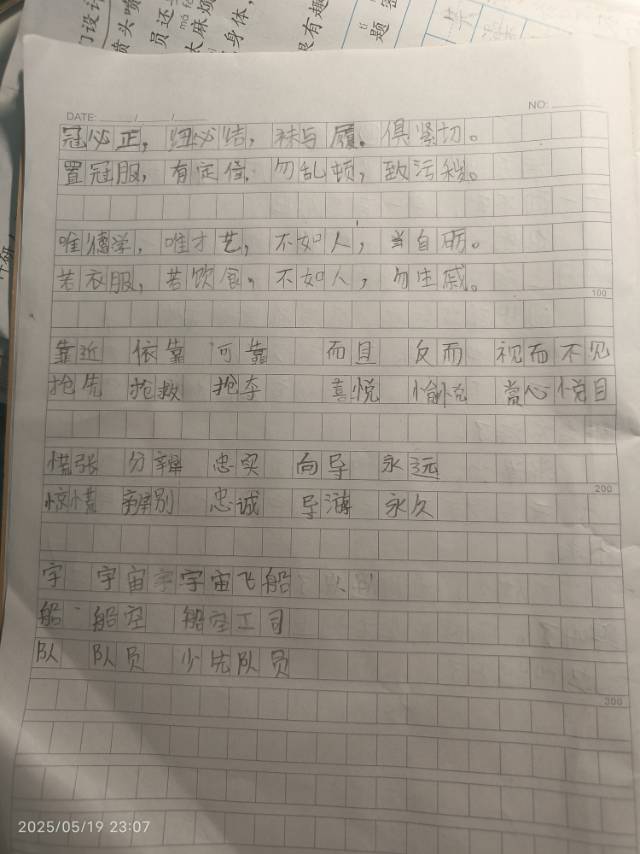 门设计
喷头喷
员还
大麻烦
身体,
很有趣
题
DATE: ____/____/____
NO: ________
冠必正，纽必结，袜与履。俱紧切。
置冠服，有定位，勿乱顿，致污秽。
唯德学，唯才艺，不如人，当自砺。
若衣服，若饮食，不如人，勿生戚。
100
靠近 依靠 可靠 而且 反而 视而不见
抢先 抢救 抢夺 喜悦 愉悦 赏心悦目
慌张 分辨 忠实 向导 永远
200
惊慌 辨别 忠诚 导游 永久
宇 宇宙 宇宙飞船
船 船空 船空工司
队 队员 少先队员
300
2025/05/19 23:07